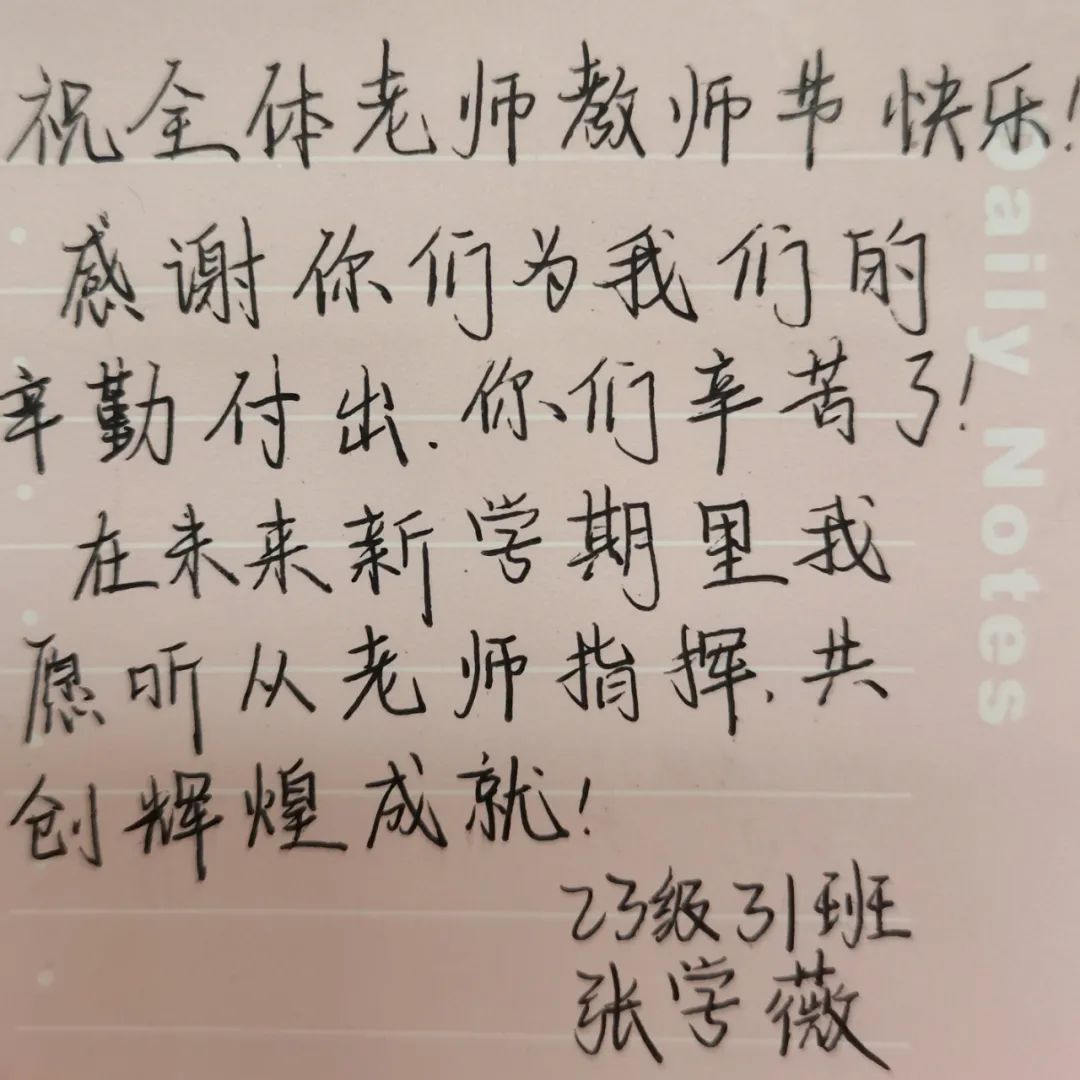 祝全体老师教师节快乐!
感谢你们为我们的
辛勤付出.你们辛苦了!
在未来新学期里我
愿听从老师指挥.共
创辉煌成就!
23级31班
张学薇
Daily Notes